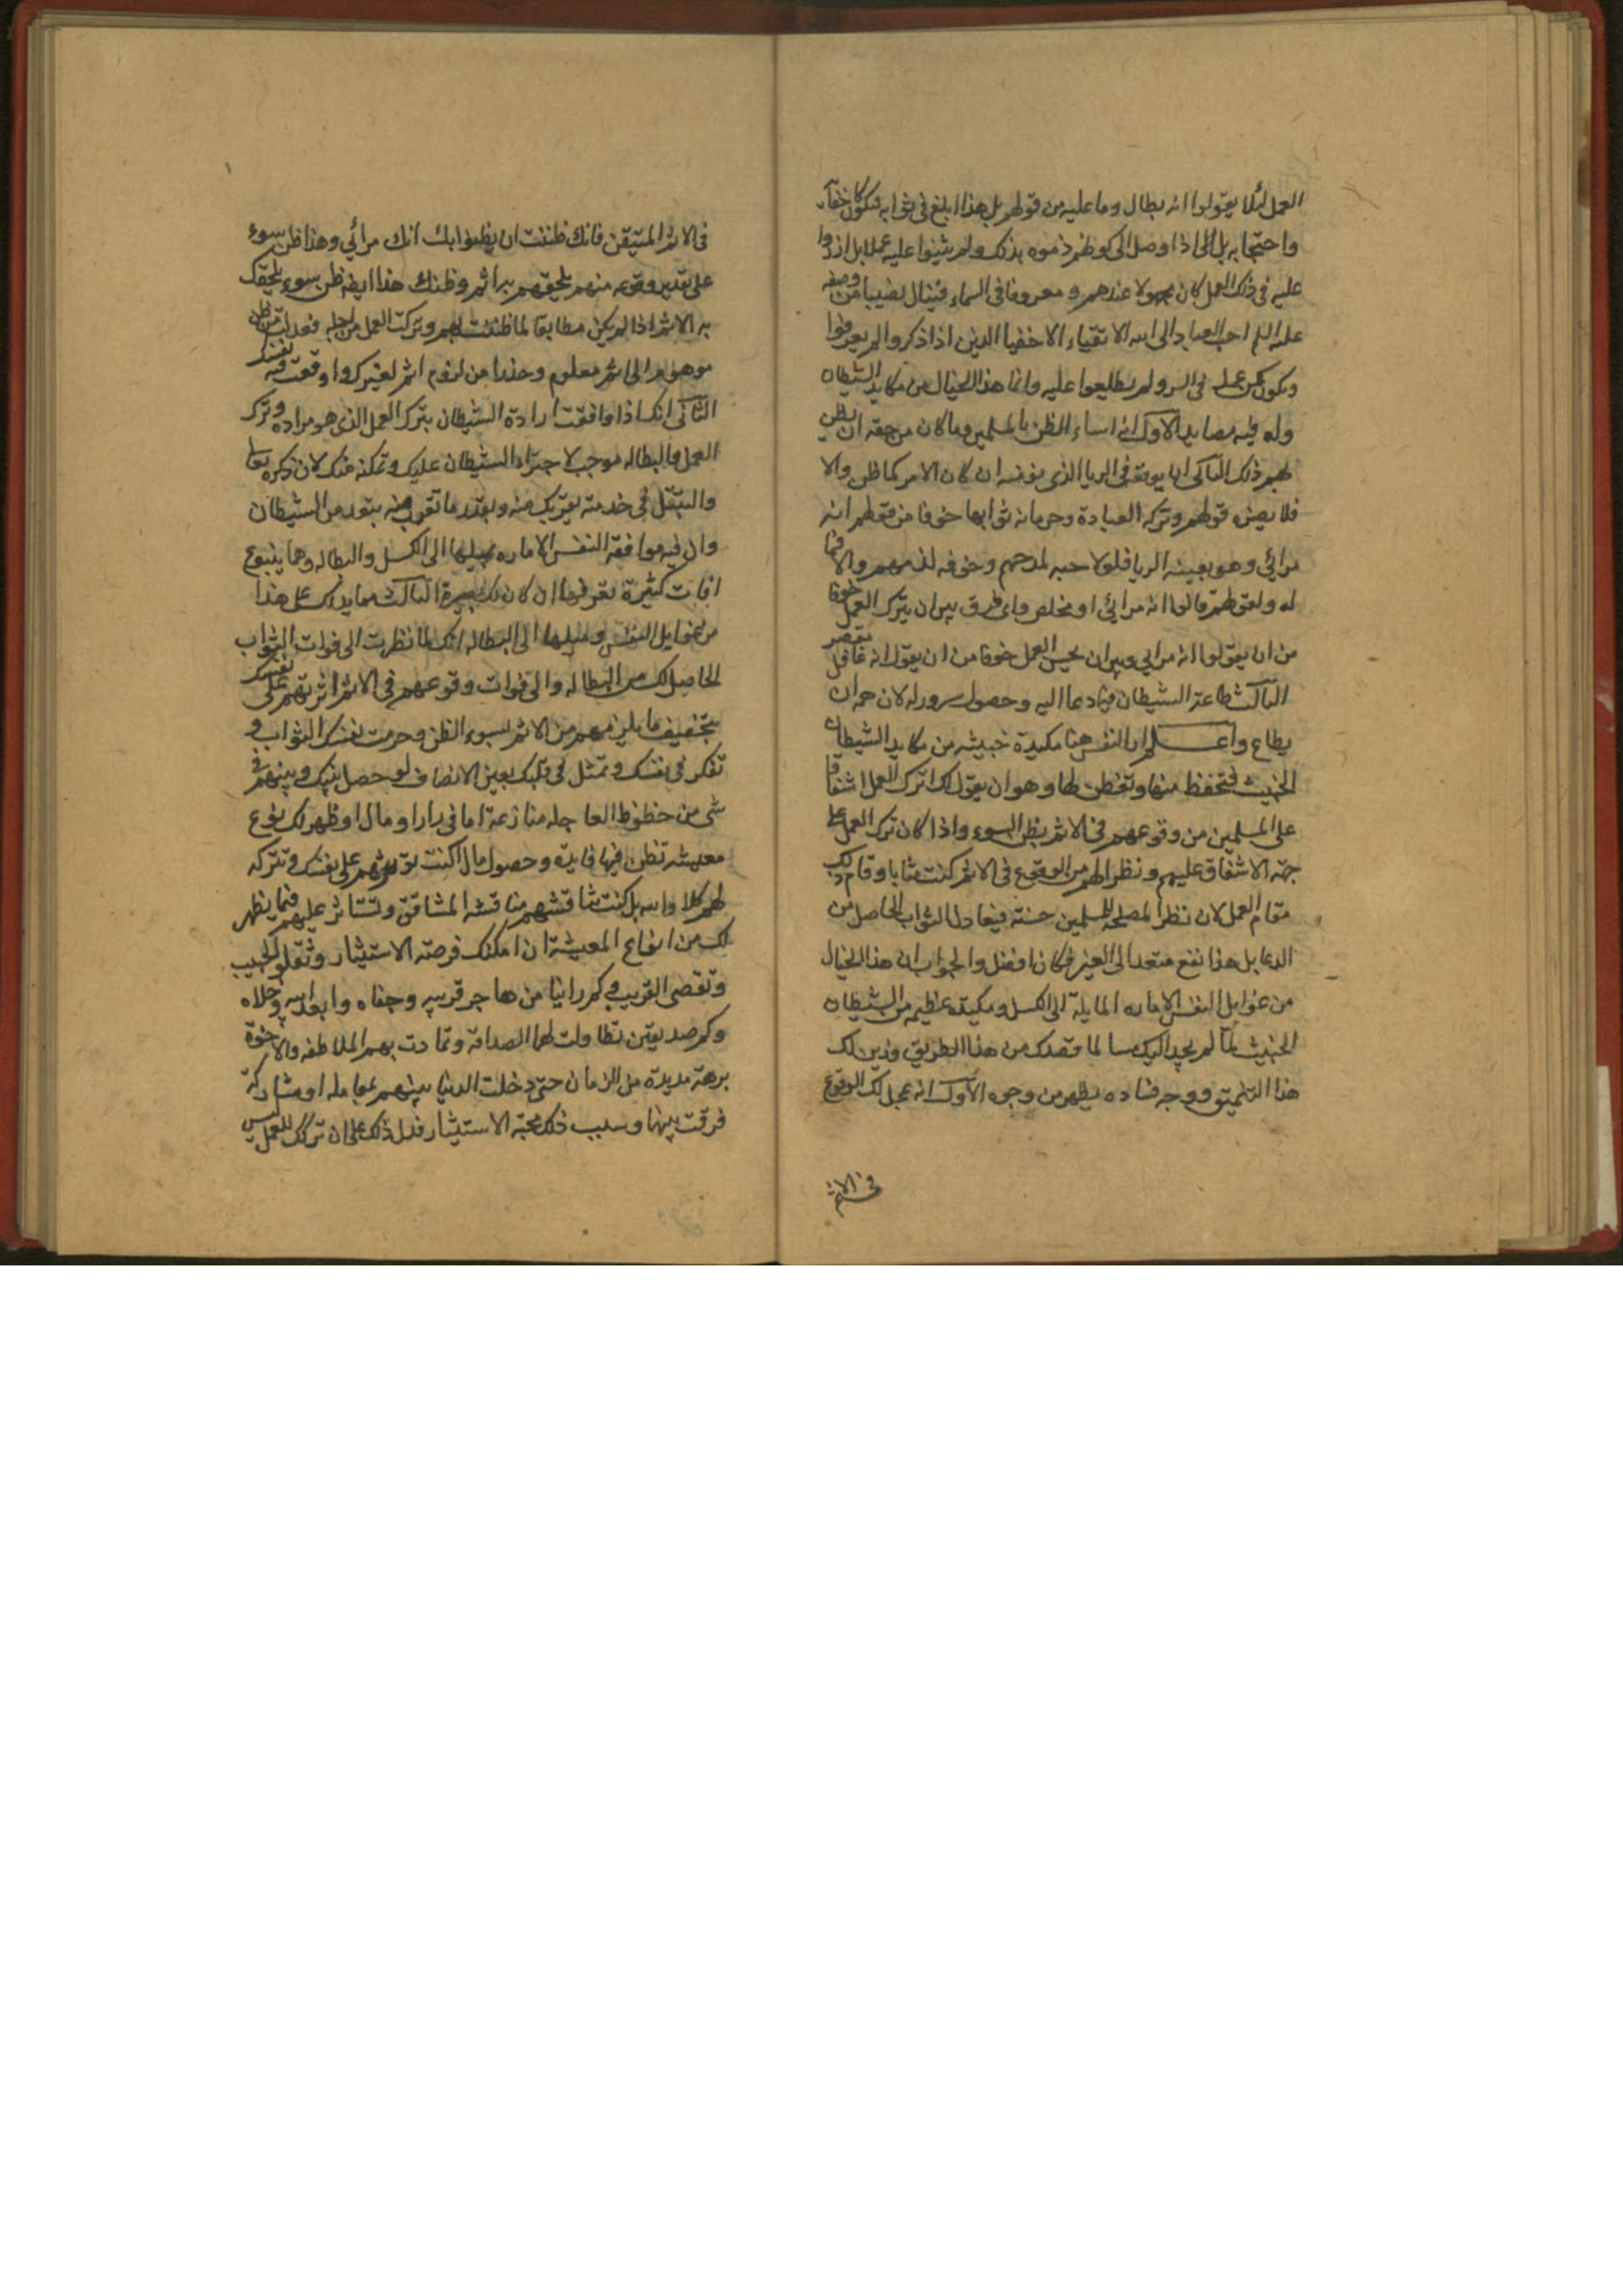 العمل لئلا يقولوا انه بطال وما عليه من قولهم بل هذا ابلغ في ثوابه فيكون كاخفائه
واحتجابه بل اذا وصل الى كونهم ذموه بذلك ولم يثنوا عليه عملا بل ازروا
عليه في ذلك العمل كان مجهولا عندهم ومعروفا في السماء فينال نصيبا من وصفه
عليه السلم احب العباد الى الله الاتقياء الاخفيا الذين اذا ذكروا لم يعرفوا
ويكون كمن عمل في السر ولم يطلعوا عليه وانما هذا الخيال من مكايد الشيطان
وله فيه مصايد الاول انه اساء الظن بالمسلمين وما كان من حقه ان يظن
بهم ذلك الثاني ان يوقعه في الريا الذي يفر منه ان كان الامر كما ظن والا
فلا يضره قولهم وتركه العبادة وحرمانه ثوابها خوفا من قولهم انه
مرائي وهو بعينه الريا فلولا حبه لمدحهم وخوفه لذمهم والا فما
له ولقولهم قالوا انه مرائي او مخلص واي فرق بين ان يترك العمل خوفا
من ان يقولوا انه مرائي وبين ان يحسن العمل خوفا من ان يقول انه غافل مقصر
الثالث طاعة الشيطان فيما دعا اليه وحصول سرور له لان همه ان
يطاع واعلم ان للنفس هنا مكيدة خبيثه من مكايد الشيطان
الخبيث فتحفظ منها وتفطن لها وهو ان يقول لك اترك العمل اشفاقا
على المسلمين من وقوعهم في الاثم بظن السوء واذا كان ترك العمل على
جهة الاشفاق عليهم ونظرا لهم من الوقوع في الاثم كنت مثابا وقام ذلك
مقام العمل لان نظر المصلحة للمسلمين حسنة فيعادل الثواب الحاصل من
الدعا بل هذا نفع متعد الى الغير فكان افضل والجواب ان هذا الخيال
من غوايل النفس الاماره المايلة الى الكسل ومكيدة عظيمه من الشيطان
الخبيث لما لم يجد اليك مسلكا قصدك من هذا الطريق وزين لك
هذا التنميق ووجه فساده يظهر من وجوه الاول انه عجل لك الوقوع
في الاثم
في الاثم المتيقن فانك ظننت ان يظنوا بك انك مرائي وهذا ظن سوء
على تقدير وقوعه منهم يلحقهم به اثم وظنك هذا ايضا ظن سوء يلحقك
به الاثم اذا لم يكن مطابقا لما ظننت بهم وتركت العمل من اجله فعدلت من ظن
موهوم الى اثم معلوم وحذرا من لزوم اثم لغيرك اوقعت فيه نفسك
الثاني انك اذا وافقت ارادة الشيطان بترك العمل الذي هو مراده وترك
العمل والبطاله موجب لاجتراء الشيطان عليك وتمكنه منك لان ذكره تعالى
والتبتل في خدمته يقربك منه وبقدر ما تقرب منه تبعد من الشيطان
وان فيه موافقة النفس الاماره بميلها الى الكسل والبطاله وهما ينبوع
افات كثيرة تعرفها ان كان لك بصيرة الثالث مما يدلك على هذا
من غوايل النفس وميلها الى البطاله انك لما نظرت الى فوات الثواب
الحاصل لك من البطاله والى فوات وقوعهم في الاثم اثرتهم على نفسك
بتخفيف ما يلزمهم من الاثم بسوء الظن وحرمت نفسك الثواب و
تفكر في نفسك وتمثل في قلبك بعين الانصاف لو حصل بينك وبينهم في
شي من حظوظ العاجله منازعة اما في دار او مال او ظهر لك نوع
معيشه تظن فيها فايدة وحصول مال اكنت تؤثرهم على نفسك وتتركه
لهم كلا والله بل كنت تناقشهم مناقشه المشاقق وتستاثر عليهم فيما يظهر
لك من انواع المعيشة ان امكنك فرصة الاستيثار وتقلو الحبيب
وتقصي القريب وكم راينا من هاجر قريبه وجفاه وابعد ابنه وخلاه
وكم صديقين تطاولت لهما الصداقه وتمادت بهم الملاطفه والاخوة
برهة مديدة من الزمان حتى دخلت الدنيا بينهم بمعامله او مشاركة
فرقت بينها وسبب ذلك محبة الاستيثار فدل ذلك على ان تركك للعمل ليس